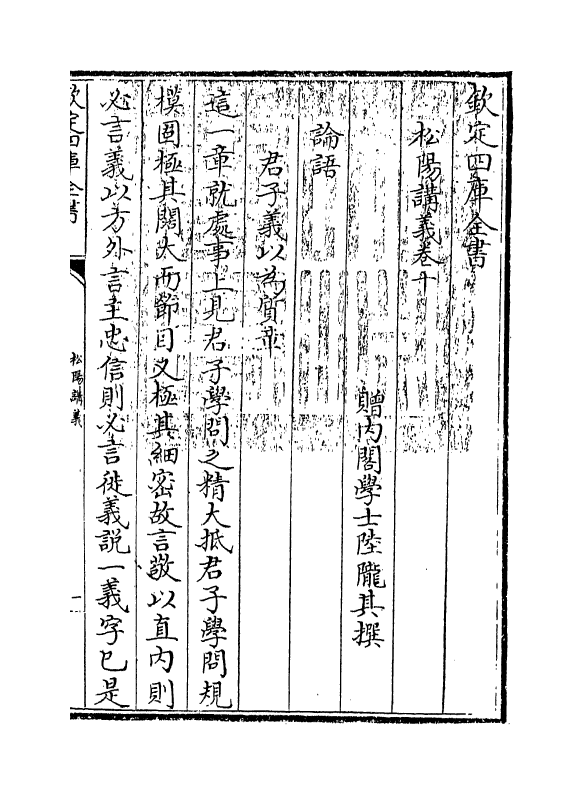 欽定四庫全書
松陽講義卷十
贈內閣學士陸隴其撰
論語
君子義以為質章
這一章就處事上見君子學問之精大抵君子學問規
模固極其闊大而節目又極其細密故言敬以直內則
必言義以方外言主忠信則必言徙義説一義字已是
欽定四庫全書
松陽講義
一